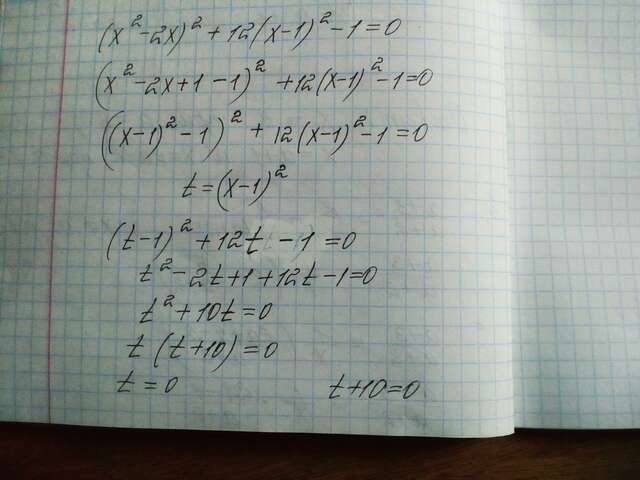 (x²-2x)²+12(x-1)²-1=0
(x²-2x+1-1)²+12(x-1)²-1=0
((x-1)²-1)²+12(x-1)²-1=0
t=(x-1)²
(t-1)²+12t-1=0
t²-2t+1+12t-1=0
t²+10t=0
t(t+10)=0
t=0 t+10=0